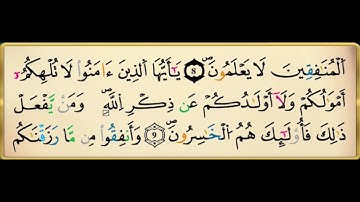 ٱلْمُنَٰفِقِينَ لَا يَعْلَمُونَ ۝٨ يَٰٓأَيُّهَا ٱلَّذِينَ ءَامَنُوا۟ لَا تُلْهِكُمْ
أَمْوَٰلُكُمْ وَلَآ أَوْلَٰدُكُمْ عَن ذِكْرِ ٱللَّهِ ۚ وَمَن يَفْعَلْ
ذَٰلِكَ فَأُو۟لَٰٓئِكَ هُمُ ٱلْخَٰسِرُونَ ۝٩ وَأَنفِقُوا۟ مِن مَّا رَزَقْنَٰكُم